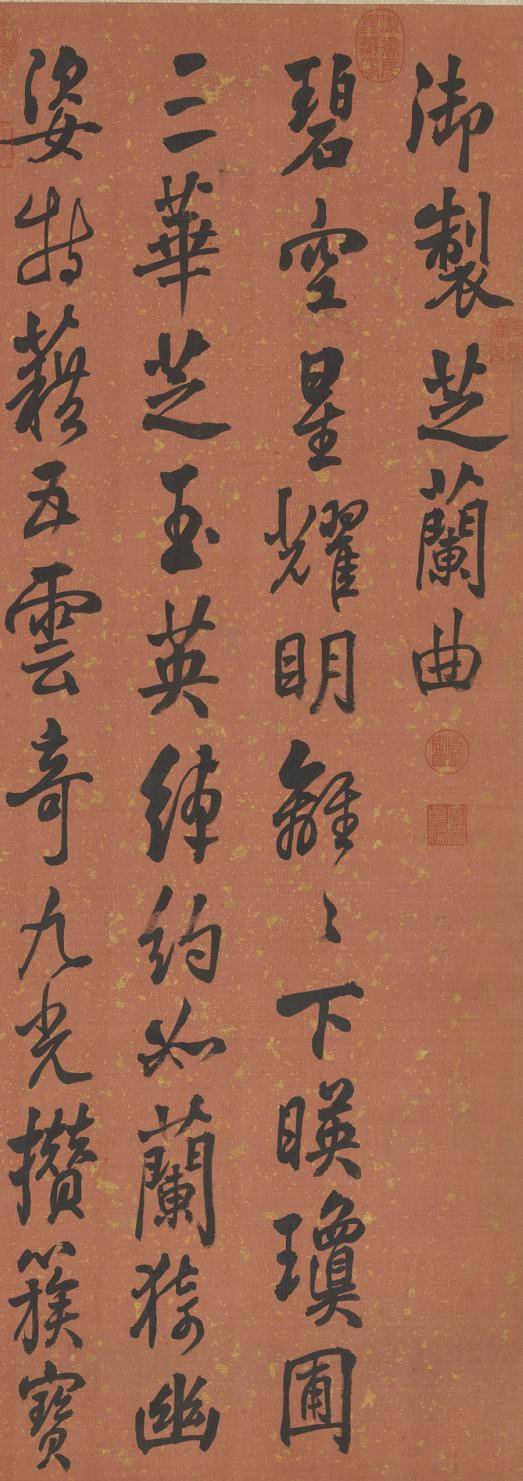 御製芝蘭曲
碧空星耀明離〻下暎瓊圃
三華芝玉英綽約如蘭猗幽
姿特藉五雲奇九光攢簇寶